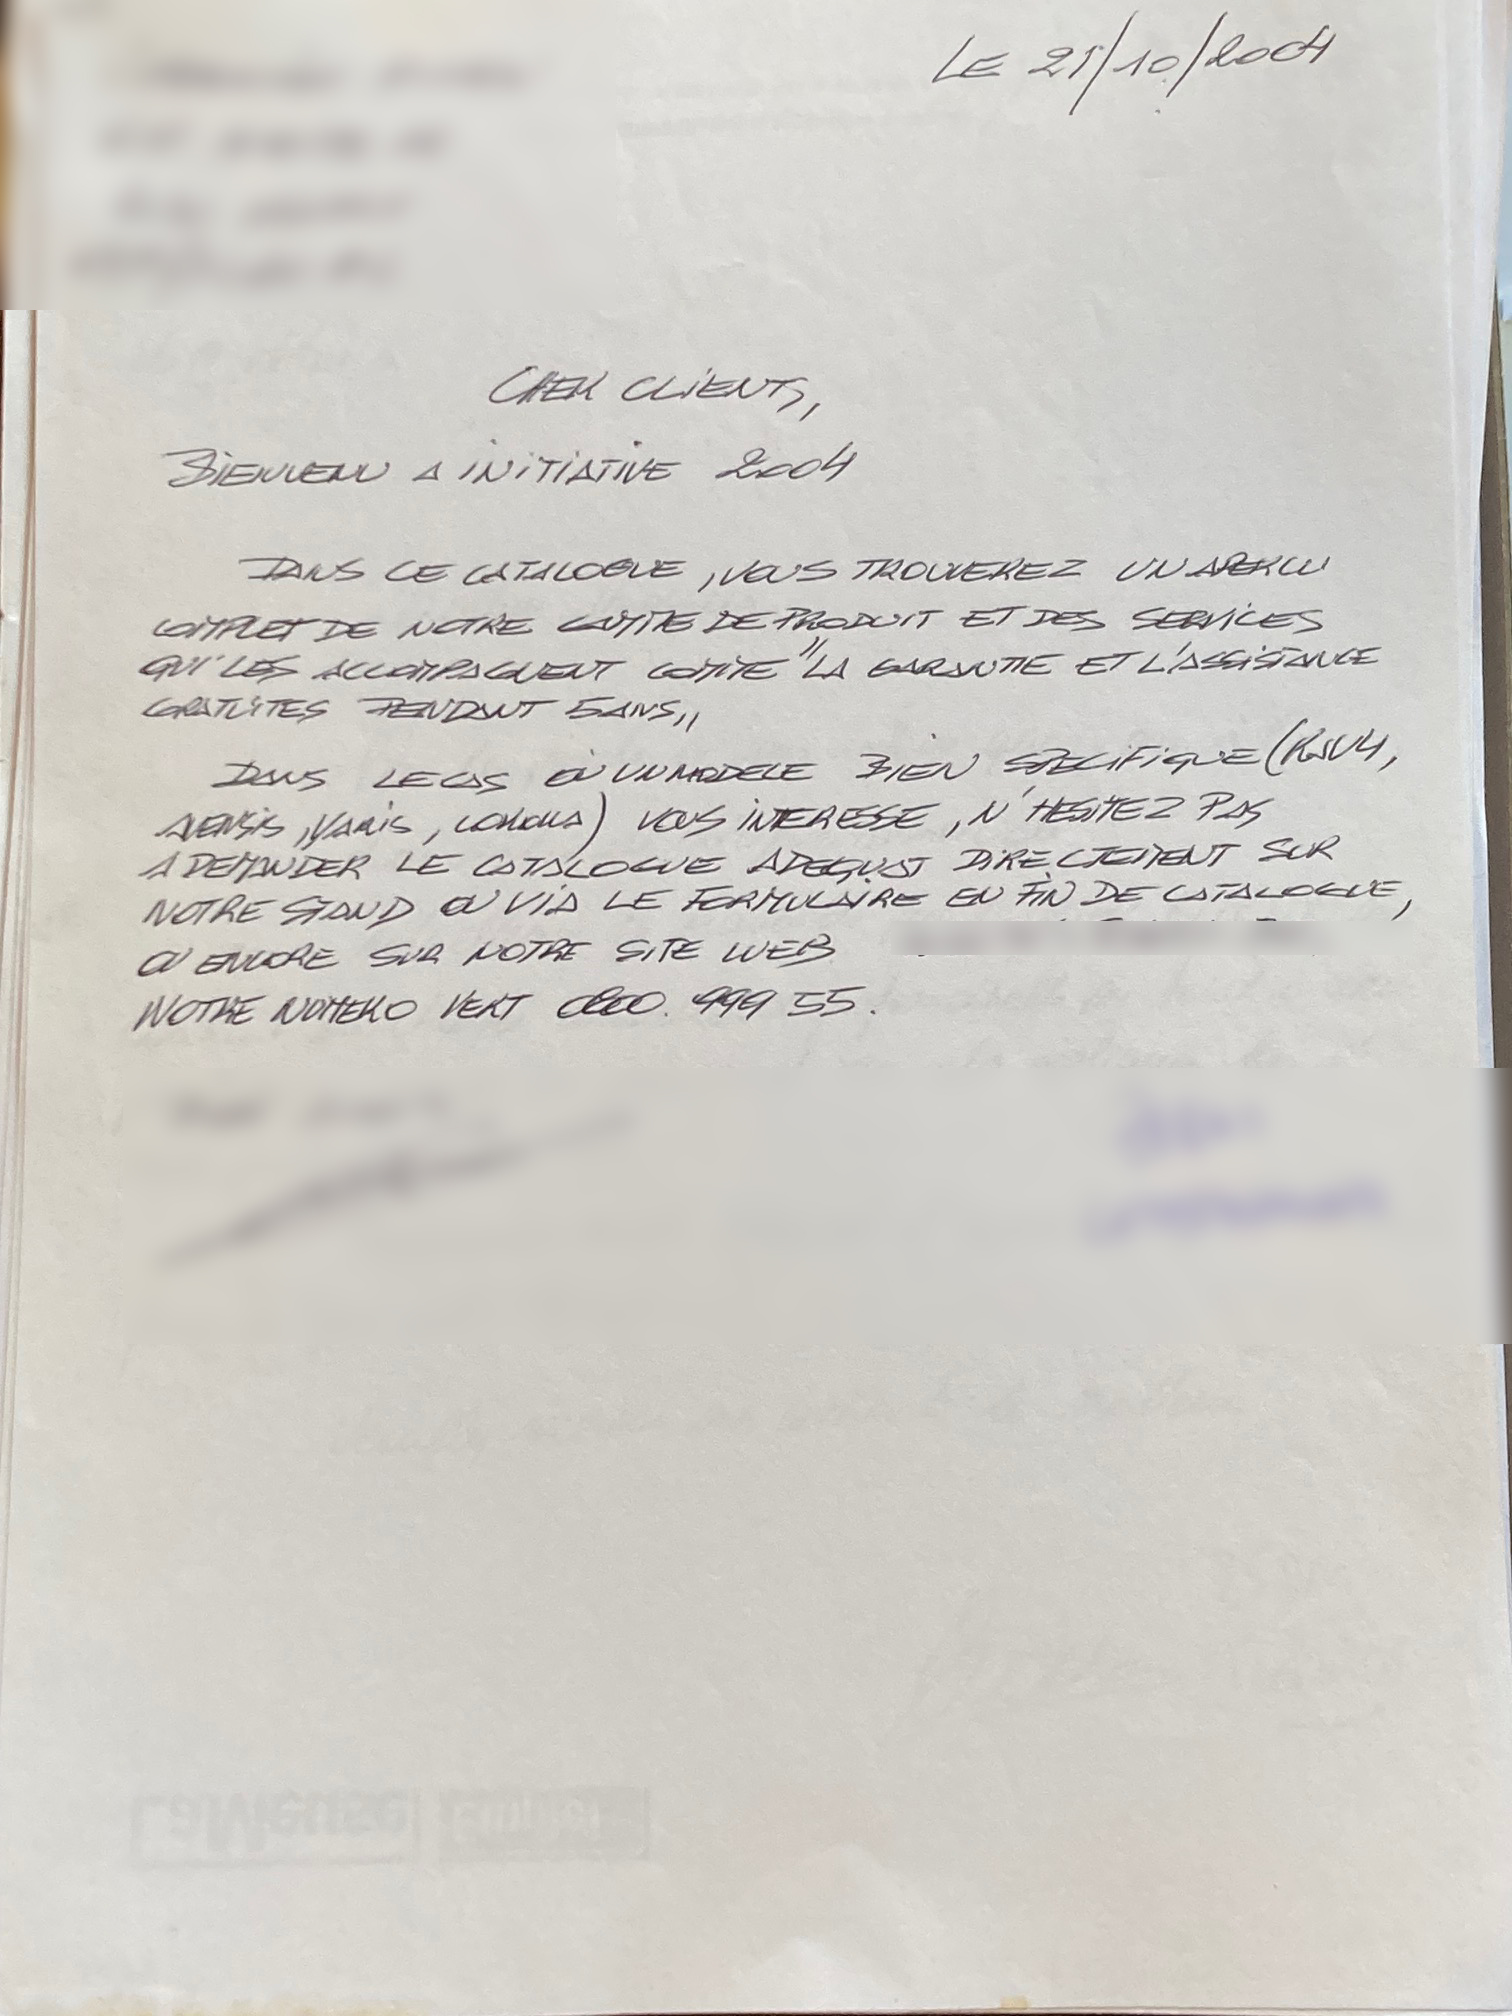 LE 21/10/2004
CHER CLIENTS,
BIENVENU A INITIATIVE 2004
DANS CE CATALOGUE, VOUS TROUVEREZ UN APERCU
COMPLET DE NOTRE GAMME DE PRODUIT ET DES SERVICES
QUI LES ACCOMPAGNENT COMME "LA GARANTIE ET L'ASSISTANCE
GRATUITES PENDANT 5 ANS,,
DANS LE CAS OÙ UN MODELE BIEN SPECIFIQUE (RAV4,
AVENSIS, YARIS, COROLLA) VOUS INTERESSE, N'HESITEZ PAS
A DEMANDER LE CATALOGUE ADEQUAT DIRECTEMENT SUR
NOTRE STAND OU VIA LE FORMULAIRE EN FIN DE CATALOGUE,
OU ENCORE SUR NOTRE SITE WEB
NOTRE NUMERO VERT 0800. 999 55.
LaMeuse